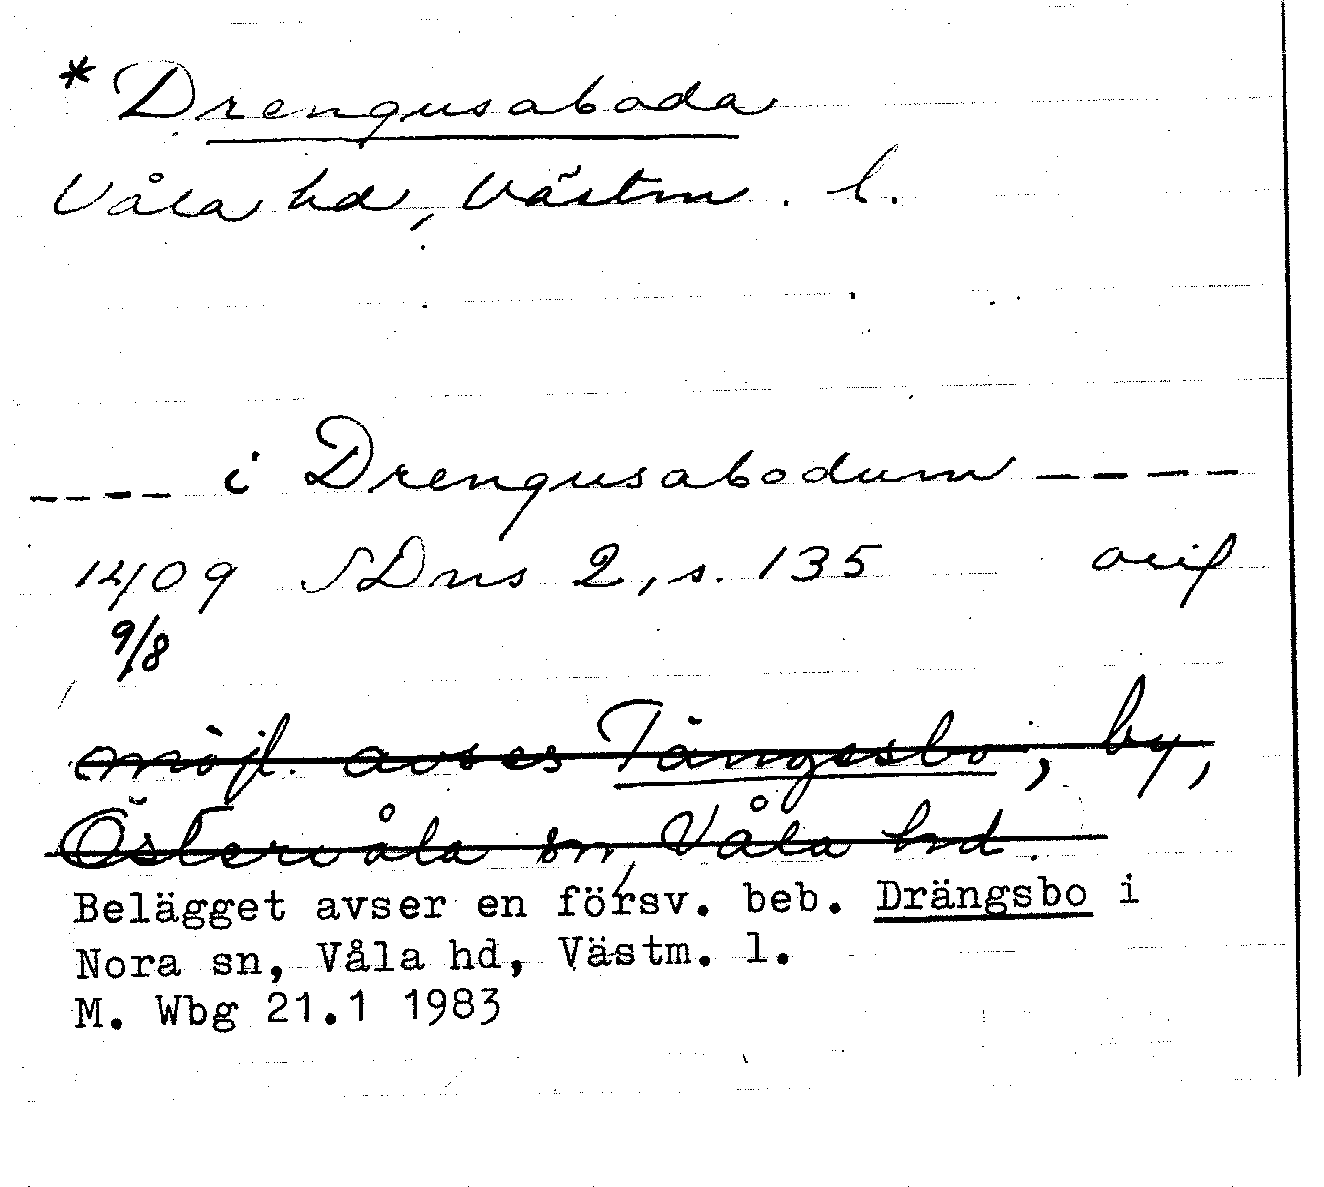 *Drengusaboda
Våla hd, Västm. l.
---- i Drengusabodum ----
1409 SDns 2, s. 135 orig
9/8
möjl. avses Tängesbo, by,
Östervåla sn, Våla hd.
Belägget avser en försv. beb. Drängsbo i
Nora sn, Våla hd, Västm. l.
M. Wbg 21.1 1983